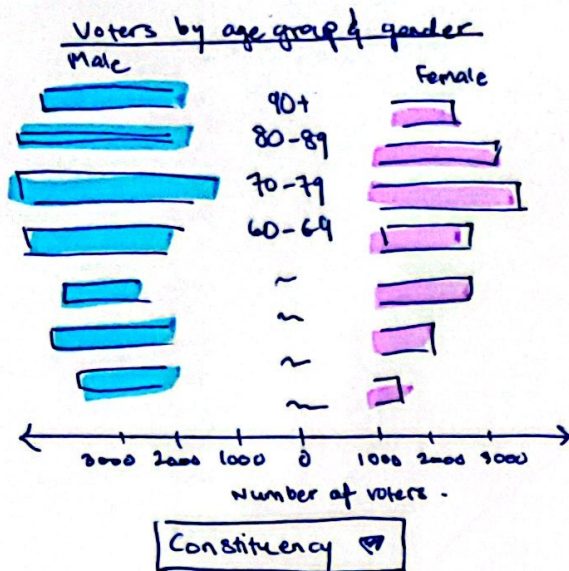 Voters by age group & gender
Male
Female
90+
80-89
70-79
60-69
~
~
~
~
3000 2000 1000 0 1000 2000 3000
Number of voters.
Constituency